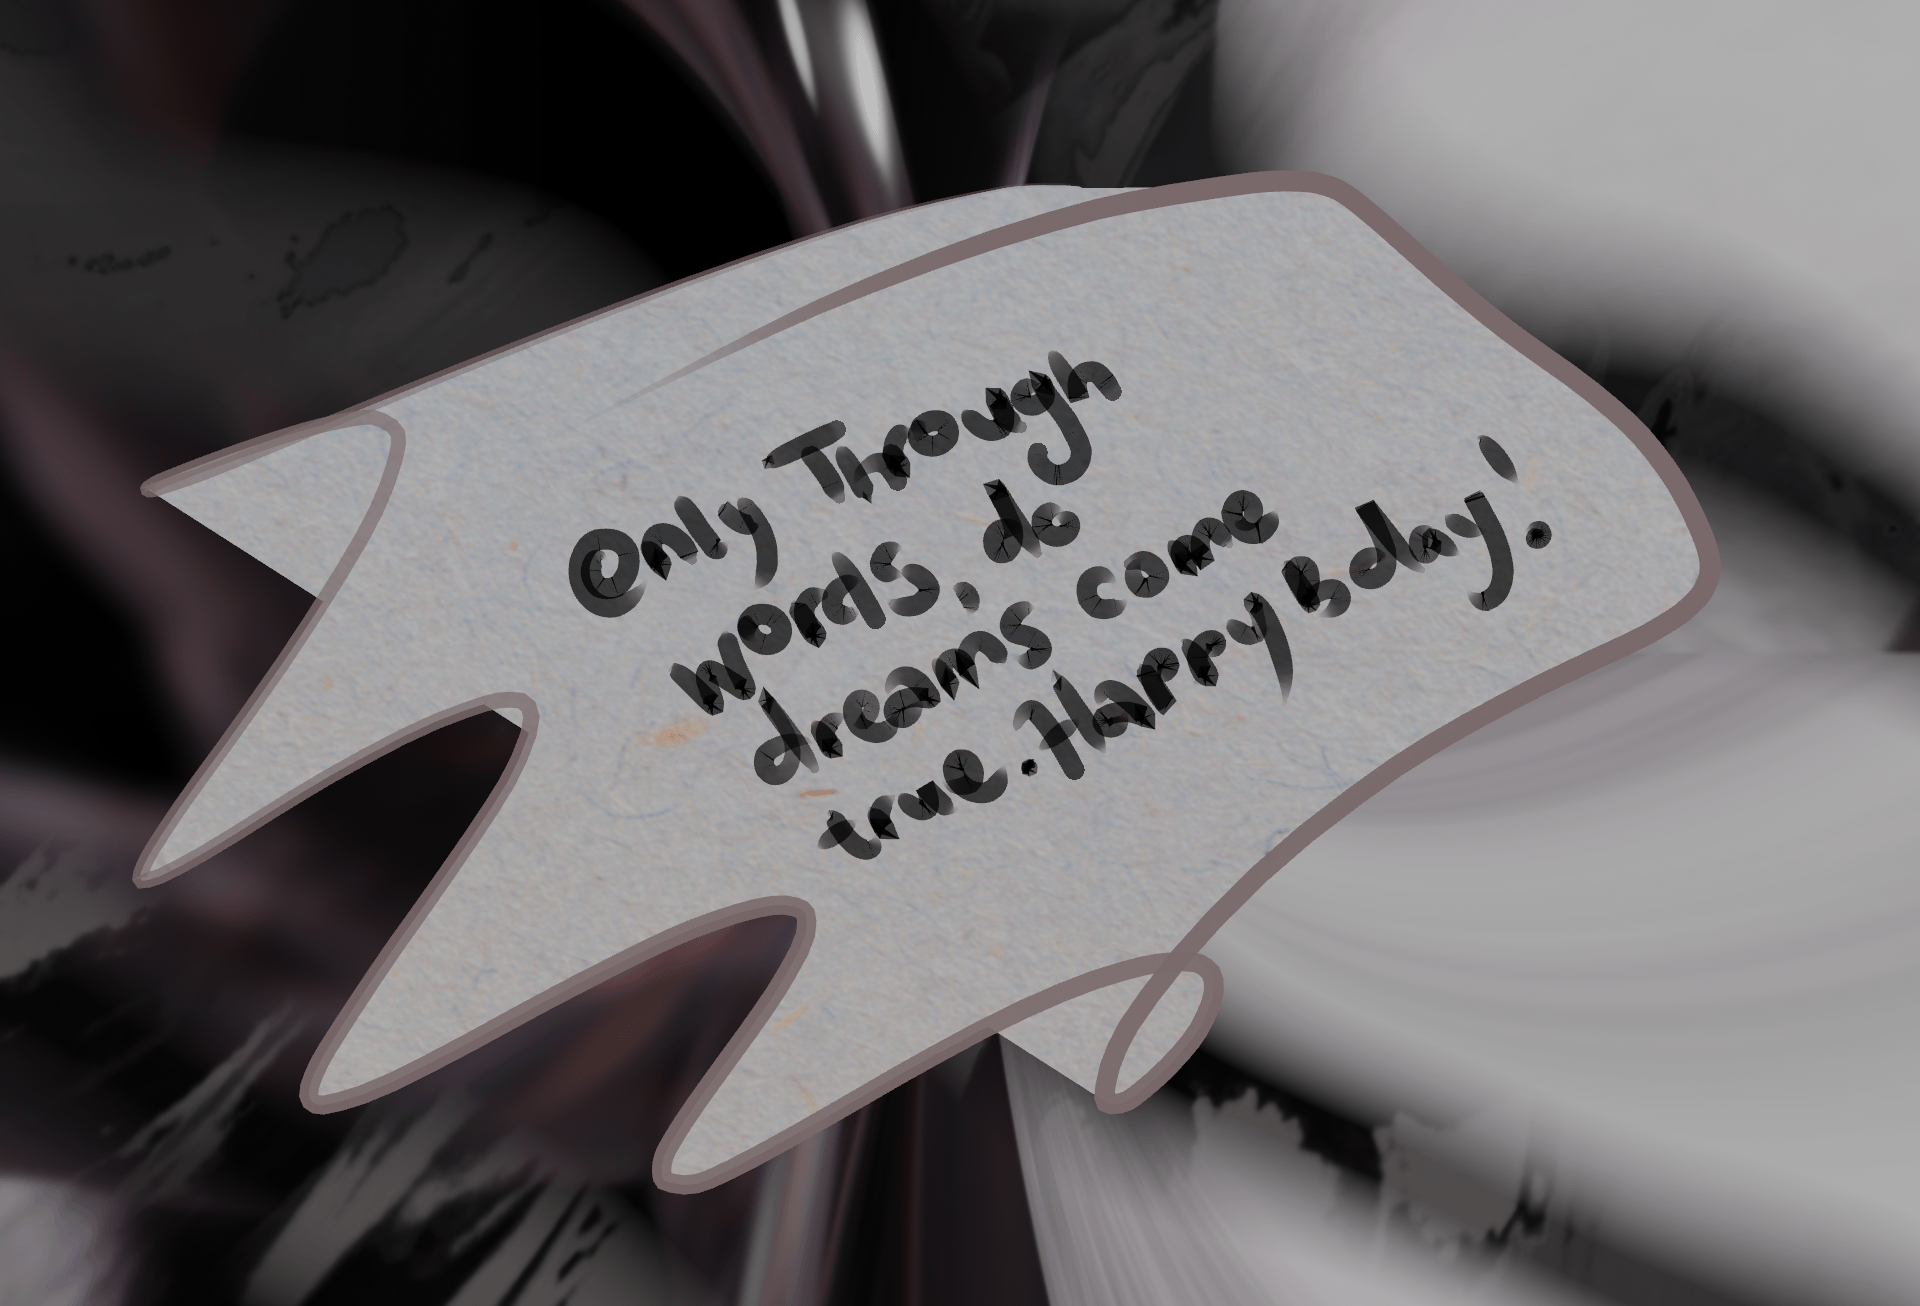 Only Through
words, do
dreams come
true. Harry Bday!